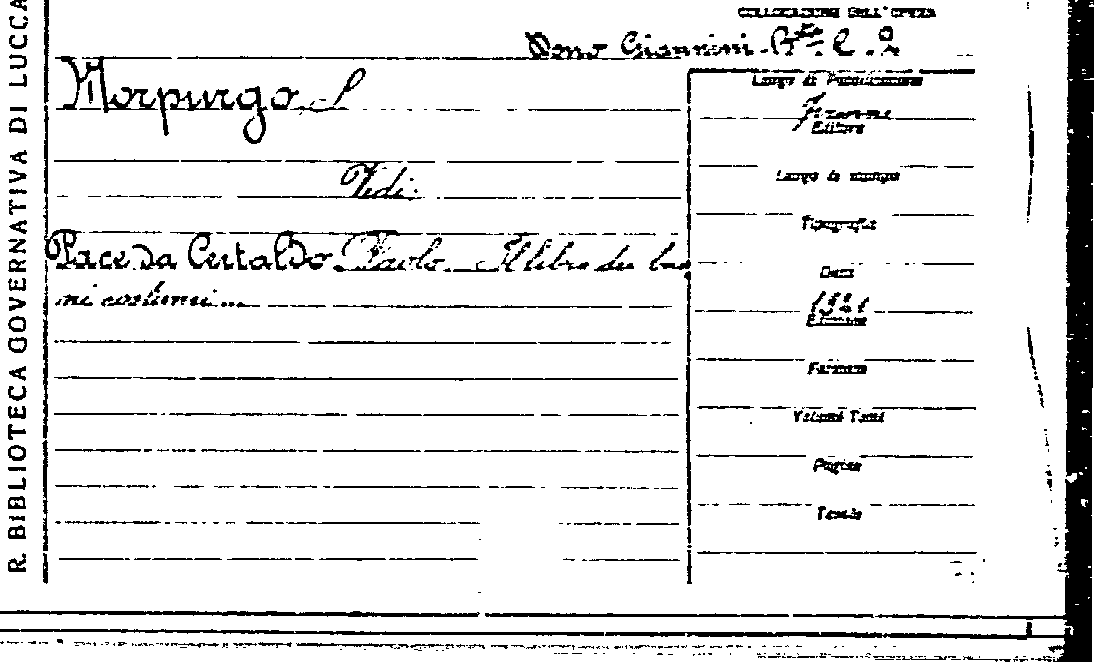 R. BIBLIOTECA GOVERNATIVA DI LUCCA
COLLOCAZIONE DELL'OPERA
Dono Giannini. Bta. C. 2
Morpurgo S
Vedi:
Pace da Certaldo Paolo. Il libro dei buo
ni costumi...
Luogo di Pubblicazione
Firenze
Editore
Luogo di stampa
Tipografia
Data
1921
Edizione
Formato
Volumi Tomi
Pagine
Tavole